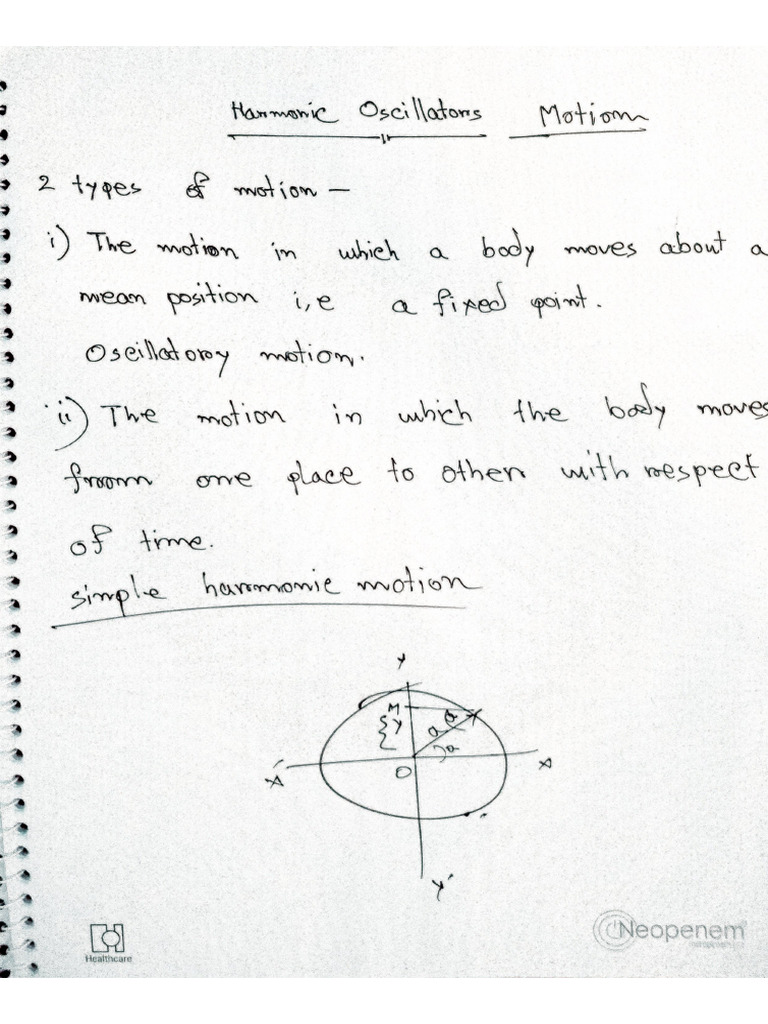 Harmonic Oscillators Motion
2 types of motion –
i) The motion in which a body moves about a
mean position i,e a fixed point.
Oscillatory motion.
ii) The motion in which the body moves
from one place to other with respect
of time.
simple harmonic motion
Y
M
y
a
O
X
X'
Y'
Healthcare
Neopenem